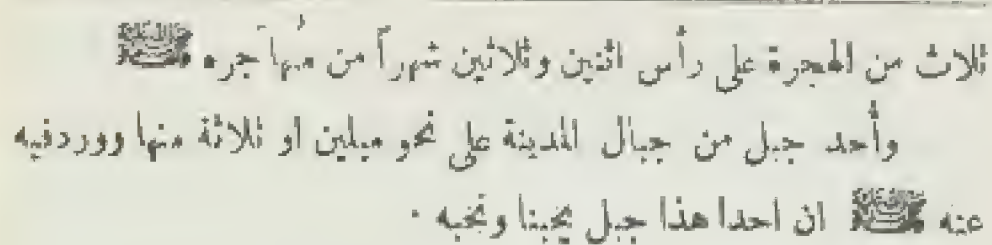 ثلاث من الهجرة على رأس اثنين وثلاثين شهراً من مُهاَجره ﷺ
وأُحد جبل من جبال المدينة على نحو ميلين او ثلاثة منها ووردفيه
عنه ﷺ ان احدا هذا جبل يحبنا ونحبه ·